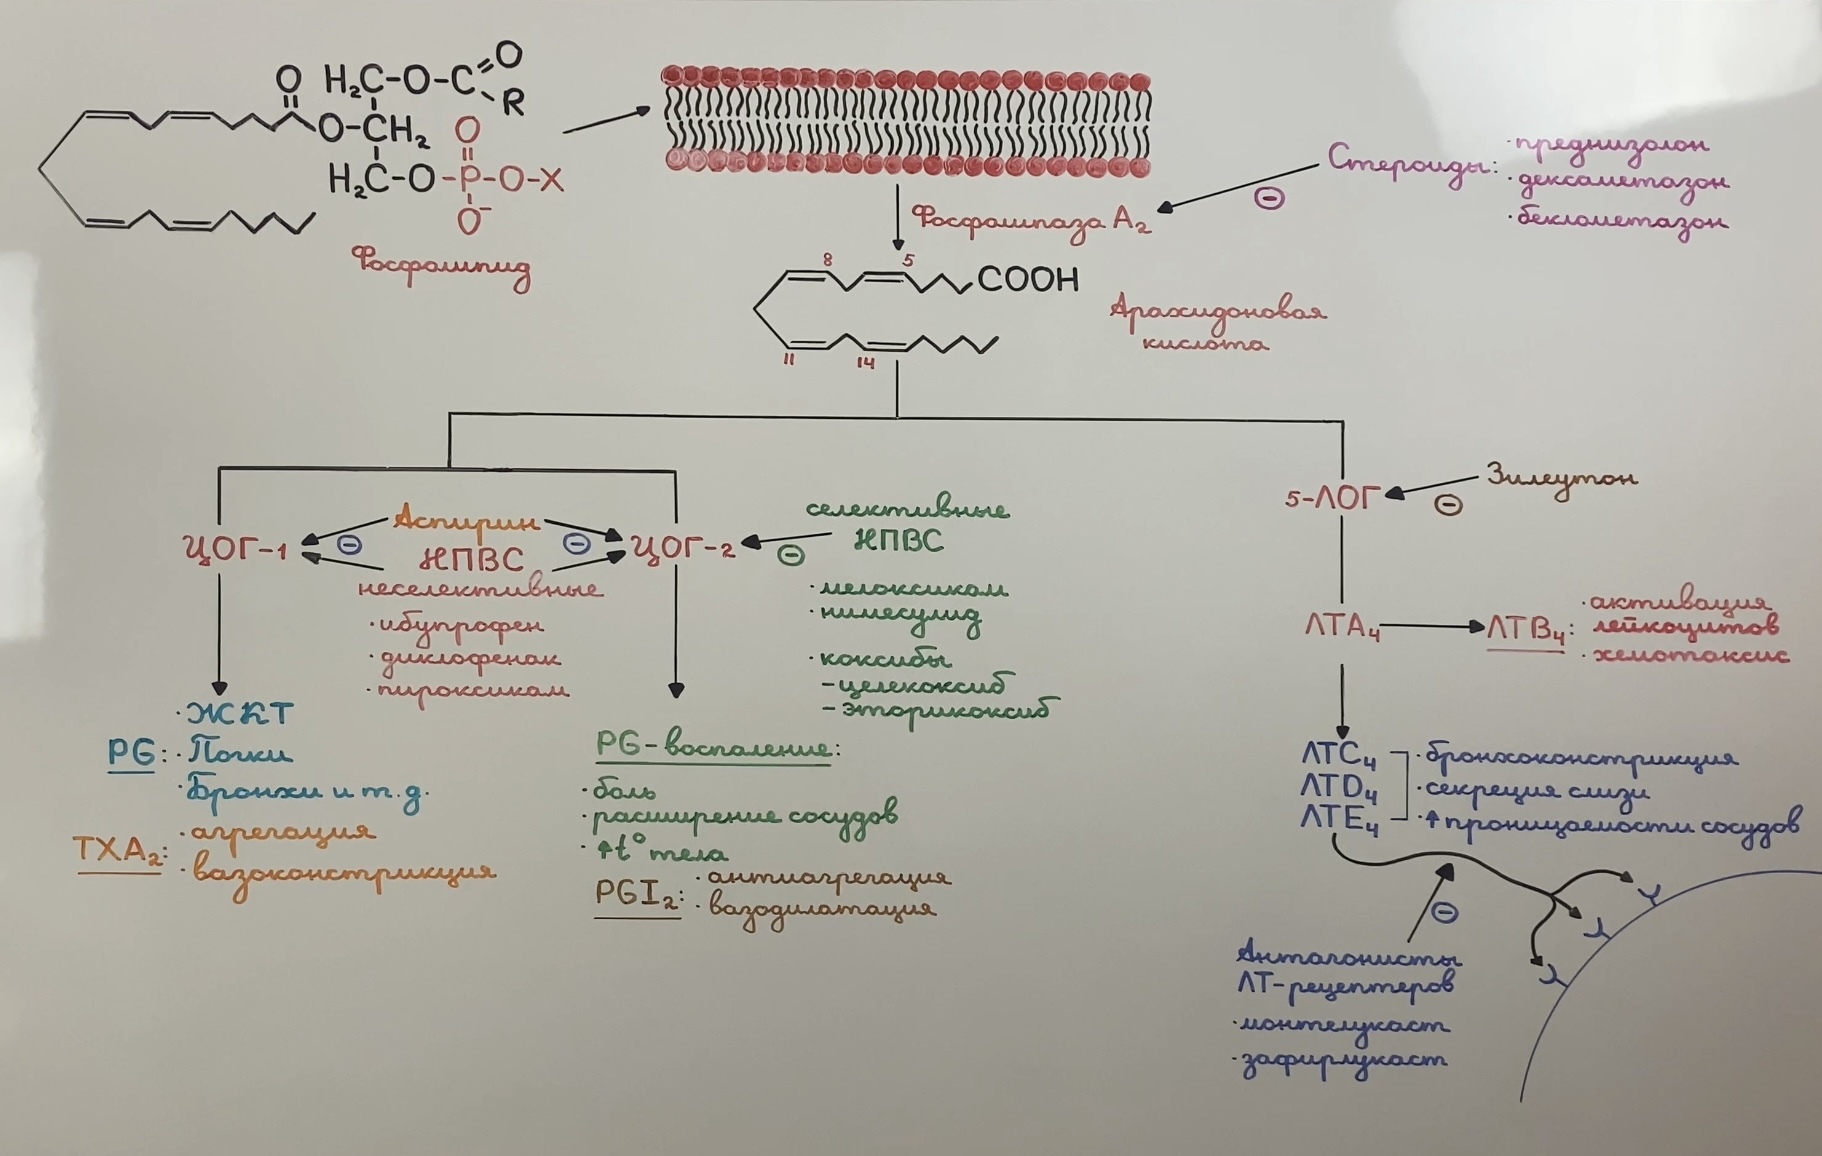 O
H₂C-O-C=O
R
O-CH₂
O
H₂C-O-P-O-X
O⁻
Фосфолипид
Фосфолипаза А₂
⊖
Стероиды:
·преднизолон
·дексаметазон
·беклометазон
8
5
COOH
11
14
Арахидоновая
кислота
ЦОГ-1
⊖
Аспирин
НПВС
неселективные
·ибупрофен
·диклофенак
·пироксикам
⊖
ЦОГ-2
⊖
селективные
НПВС
·мелоксикам
·нимесулид
·коксибы
-целекоксиб
-эторикоксиб
5-ЛОГ
⊖
Зилеутон
ЛТА₄
ЛТВ₄:
·активация
лейкоцитов
·хемотаксис
PG:
·ЖКТ
·Почки
·Бронхи и т.д.
TXA₂:
·агрегация
·вазоконстрикция
PG-воспаление:
·боль
·расширение сосудов
·↑t° тела
PGI₂:
·антиагрегация
·вазодилатация
ЛТС₄
ЛТD₄
ЛТЕ₄
·бронхоконстрикция
·секреция слизи
·↑проницаемости сосудов
⊖
Антагонисты
ЛТ-рецептеров
·монтелукаст
·зафирлукаст